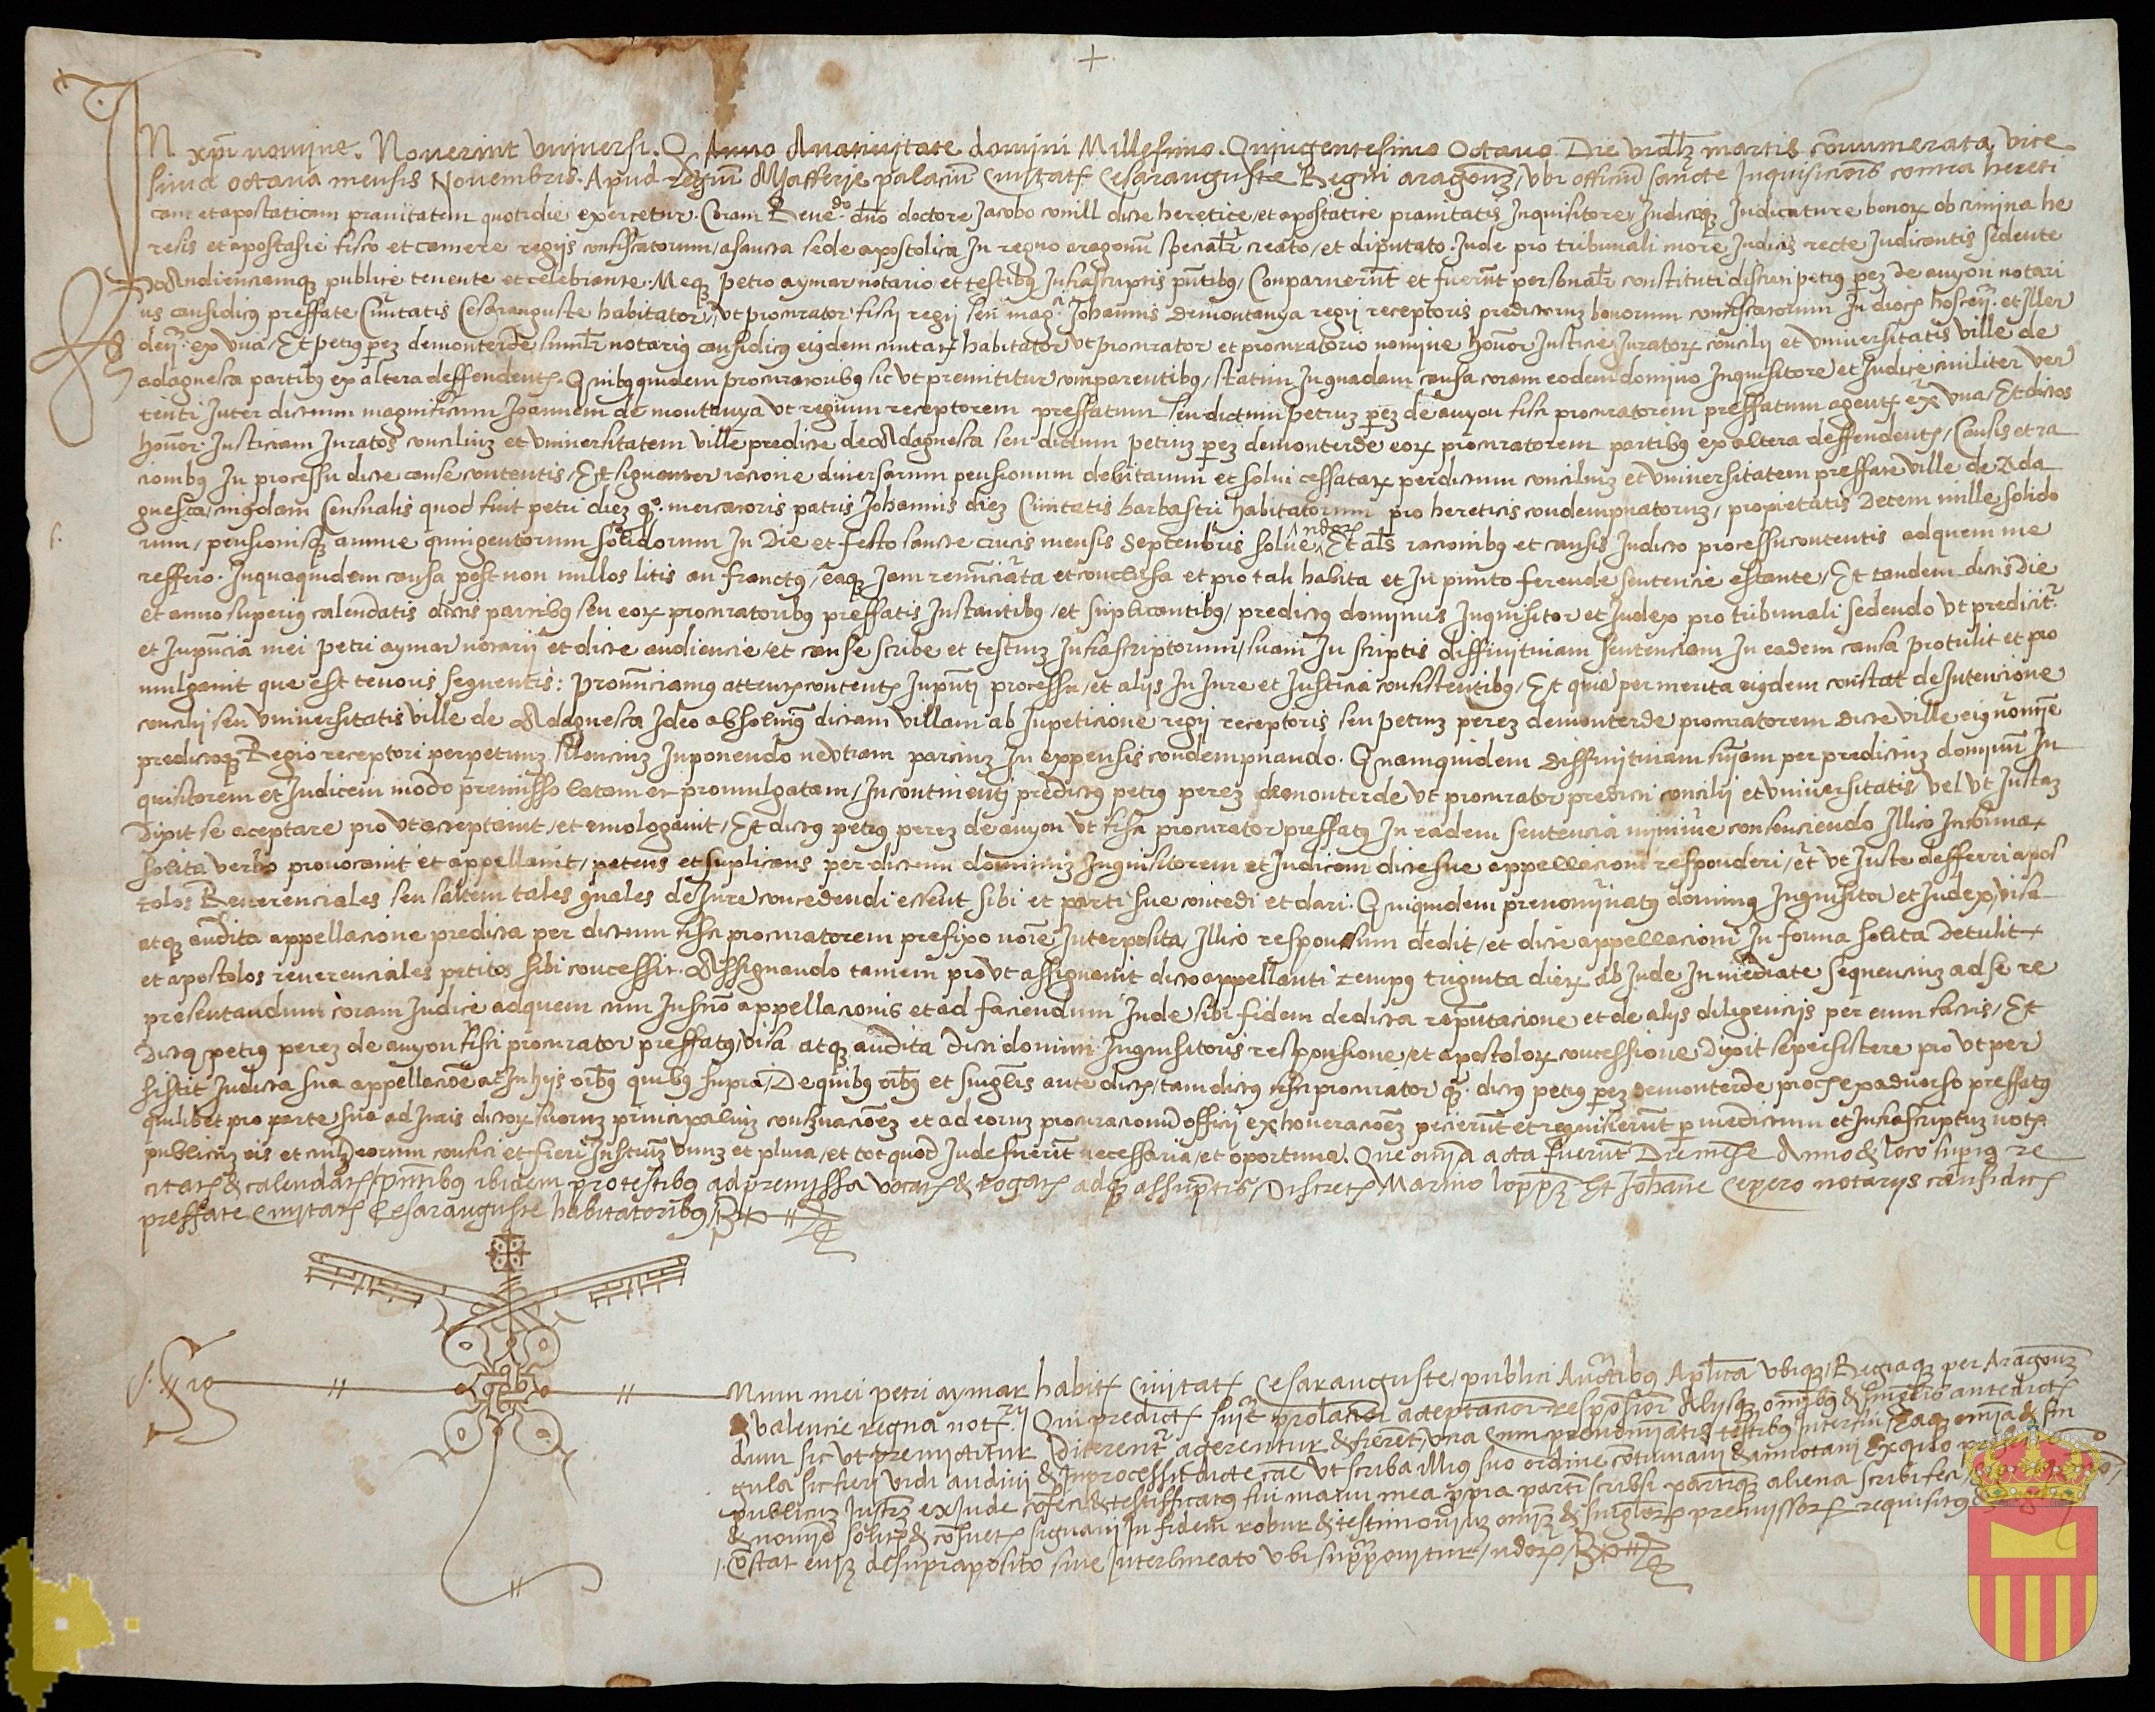 In xpi nomine. Noverint universi. Q Anno Anativitate domini Millesimo. Quingentesimo Octavo Die vidz martis connumerata vice
sima octava mensis Novembris. Apud Regiu Aljafferie palaciu Civitatis Cesarauguste Regni aragonz, ubi officiu sancte Inquisicionis contra hereti
cam et apostaticam pravitatem quotidie exercetur. Coram Revedo dno doctore Jacobo conill dicte heretice, et apostatice pravitatis Inquisitore, Judiceqz Judicature bonor ob crimina he
resis et apostasie fisco et camere regijs confiscatorum, a sancta sede apostolica In regno aragonu specialr creato, et diputato. Inde pro tribunali more Judicis recte Judicantis sedente
Audienciamqz publice tenente et celebrante. Meqz petro aymar notario et testibus Infrascriptis pntibus, Conparuerut et fuerut personalr constituti discreti petrus perz de anyon notari
us causidicus preffate Civitatis Cesarauguste habitator, ut procurator fisci regij seu magci Johannis demontanya regij receptoris predictoruz bonorum confiscatorum In dioces hoscen. et Iller
den. ex una, Et petrus perz demonterde similr notarius causidicus eiusdem civitatis habitator ut procurator et procuratorio nomine honor Justicie Jurator concilij et universitatis ville de
adaguesca partibus ex altera deffendentes. Quibus quidem procuratoribus sic ut premititur comparentibus, statim In quadam causa coram eodem domino Inquisitore et Judice civiliter ver
tenti Inter dictum magnificum Joannem de montanya ut regium receptorem preffatum seu dictum petruz perz de anyon fisci procuratorem preffatum agentes ex una, Et dictos
honor. Justiciam Juratos conciliuz et universitatem ville predicte de Adaguesca seu dictum petruz perz demonterde eor procuratorem partibus ex altera deffendentes, Causis et ra
cionibus In processu dicte cause contentis, Et signanter racione diversarum pensionum debitarum et solvi cessatar per dictum conciliuz et universitatem preffate ville de Ada
guesca, cuiusdam Censualis quod fuit petri diez qo. mercatoris patris Johannis diez Civitatis barbastri habitatorum pro hereticis condempnatoruz, propietatis Decem mille solido
rum, pensionisqz annue quingentorum solidorum In Die et festo sancte crucis mensis Septembris solve ndor Et als racionibus et causis In dicto processu contentis ad quem me
reffero. In qua quidem causa post non nullos litis anfractus, eaqz Jam renunciata et conclusa et pro tali habita et In puncto ferende sentencie estante, Et tandem dictis Die
et anno superius calendatis dictis partibus seu eor procuratoribus preffatis Instantibus, et suplicantibus, predictus dominus Inquisitor et Judex pro tribunali sedendo ut predicitr
et In pncia mei petri aymar notarij et dicte audiencie, et cause scribe et testiuz Infrascriptorum, suam In scriptis diffinitivam sentenciam In eadem causa protulit et pro
mulgavit que est tenoris sequentis: Pronunciamus attentis contentis In pnti processu, et alijs In Jure et Justicia consistentibus, Et quia per merita eiusdem constat de Intencione
concilij seu universitatis ville de Adaguesca Ideo absolvimus dictam villam ab Inpeticione regij receptoris seu petruz perez demonterde procuratorem dicte ville eius nomine
predictoqz Regio receptori perpetuuz silenciuz Inponendo neutram parciuz In expensis condempnando. Quamquidem Diffinitivam sniam per predictuz dominu In
quisitorem et Judicem modo premisso latam et promulgatam, Incontinenti predictus petrus perez demonterde ut procurator predicti concilij et universitatis, vel ut Justaz
Dixit se aceptare pro ut aceptavit, et emologavit, Et dictus petrus perez de anyon ut fisci procurator preffatus In eadem sentencia minime consenciendo Illico In forma
solita verbo provocavit et appellavit, petens et suplicans per dictum dominuz Inquisitorem et Judicem dicte sue appellacioni responderi, et ut Juste defferri apos
tolos Reverenciales seu saltem tales quales de Jure concedendi essent sibi et parti sue concedi et dari. Quiquidem prenominatus dominus Inquisitor et Judex, visa
atqz audita appellacione predicta per dictum fisci procuratorem prefixo nore Interposita, Illico responsum dedit, et dicte appellacioni In forma solita Detulit
et apostolos reverenciales petitos sibi concessit. Assignando tamen pro ut assignavit dicto appellanti tempus triginta dier ab Inde In mediate sequenciuz ad se re
presentandum coram Judice ad quem cum Instro appellacionis et ad faciendum Inde sibi fidem de dicta reputacione et de alijs diligencijs per eum factis, Et
Dictus petrus perez de anyon fisci procurator preffatus, visa atqz audita Dicti domini Inquisitoris responsione, et apostolor concessione Dixit se persistere pro ut per
sistit In dicta sua appellacioe at In hijs oibus quibus supra, De quibus oibus et singlis ante dictis, tam dictus fisci procurator qz. dictus petrus perz demonterde procur ex adverso preffatus
quilibet pro parte sua ad Juris dictor suoruz principaliuz conservacioez et ad eoruz procuracionu officij exhoneracioez pecierut et requisierut p me dictum et Infrascriptuz notm
publicuz eis et cuilz eorum confici et fieri Instruz unuz et plura, et tot quot Inde fuerint necessaria, et oportuna. Que omia acta fuerut Die mese Anno & loco superius re
citatis & calendatis, pntibus ibidem pro testibus ad premissa vocatis & rogatis adqz assuptis, Discretis Martino loppz Et Johanne Cepero notarijs causidicis
preffate Civitatis Cesarauguste habitatoribus,
Sig num mei petri aymar habitis Civitatis Cesarauguste, publici Auctibus Aplica ubique, Regiaqz per Aragonz
& valencie regna notrij Qui predictis snie prolacioi aceptacioi resposioi Alijsqz omibus & singlis antedictis
dum sic ut premictitur Dicerentr agerentur & fierent, una cum prenomiatis testibus Interfui, Eaqz omia & sin
gula sic fieri vidi audivi & In processu dicte cae ut scriba illius suo ordine cotinuavi & annotavi Ex quo
publicuz Instrz ex Inde cofeci & testifficatus fui manu mea ppia parti scribsi partiqz aliena scribi feci
& nomie solitis & cosuetis signavi In fidem robur & testimoniuz omiz & singlor premissor requisitus
Costat eniz de supraposito sive Interlineato ubi supponitur, ndor,